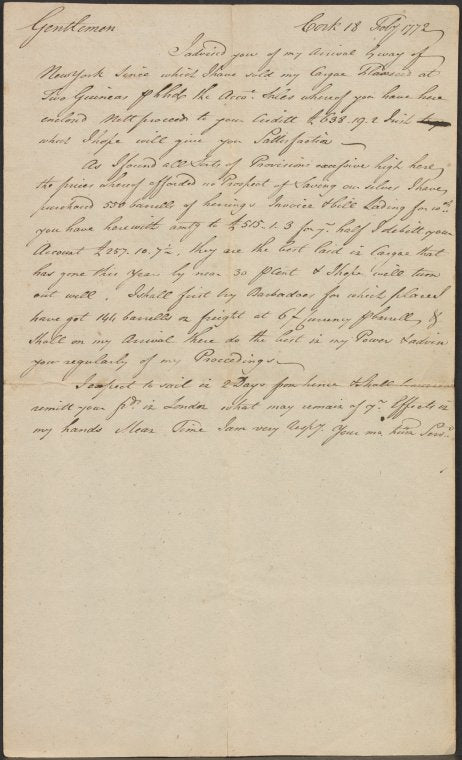 Gentlemen Cork 18 Feby 1772
I advised you of my Arrival by way of
New York Since which I have sold my Cargae Flaxseed at
Two Guineas p hhd the Acco. Sales whereof you have here
enclosed Nett proceed to your Creditt £638.19.2 Irish
which I hope will give you Sattisfaction
As I found all Sorts of Provisions excessive high here
the prices whereof afforded no Prospect of Saving our selves I have
purchased 550 barrells of herrings Invoice & bill Lading for wch.
you have herewith amtg to £515.1.3 for yr half I debitt your
Account £257.10.7½, they are the best Laid in Cargae that
has gone this Year by near 30 p Cent & I hope will turn
out well. I shall first try Barbadoes for which place I
have got 146 barrells on freight at 6/ Curreny p barrell, &
Shall on my Arrival there do the best in my Power & advise
you regularly of my Proceedings.
I expect to sail in 2 Days from hence & shall
remitt your frds. in London what may remain of yr. Effects in
my hands Mean Time I am very Respy. Your mo. hum Servt.